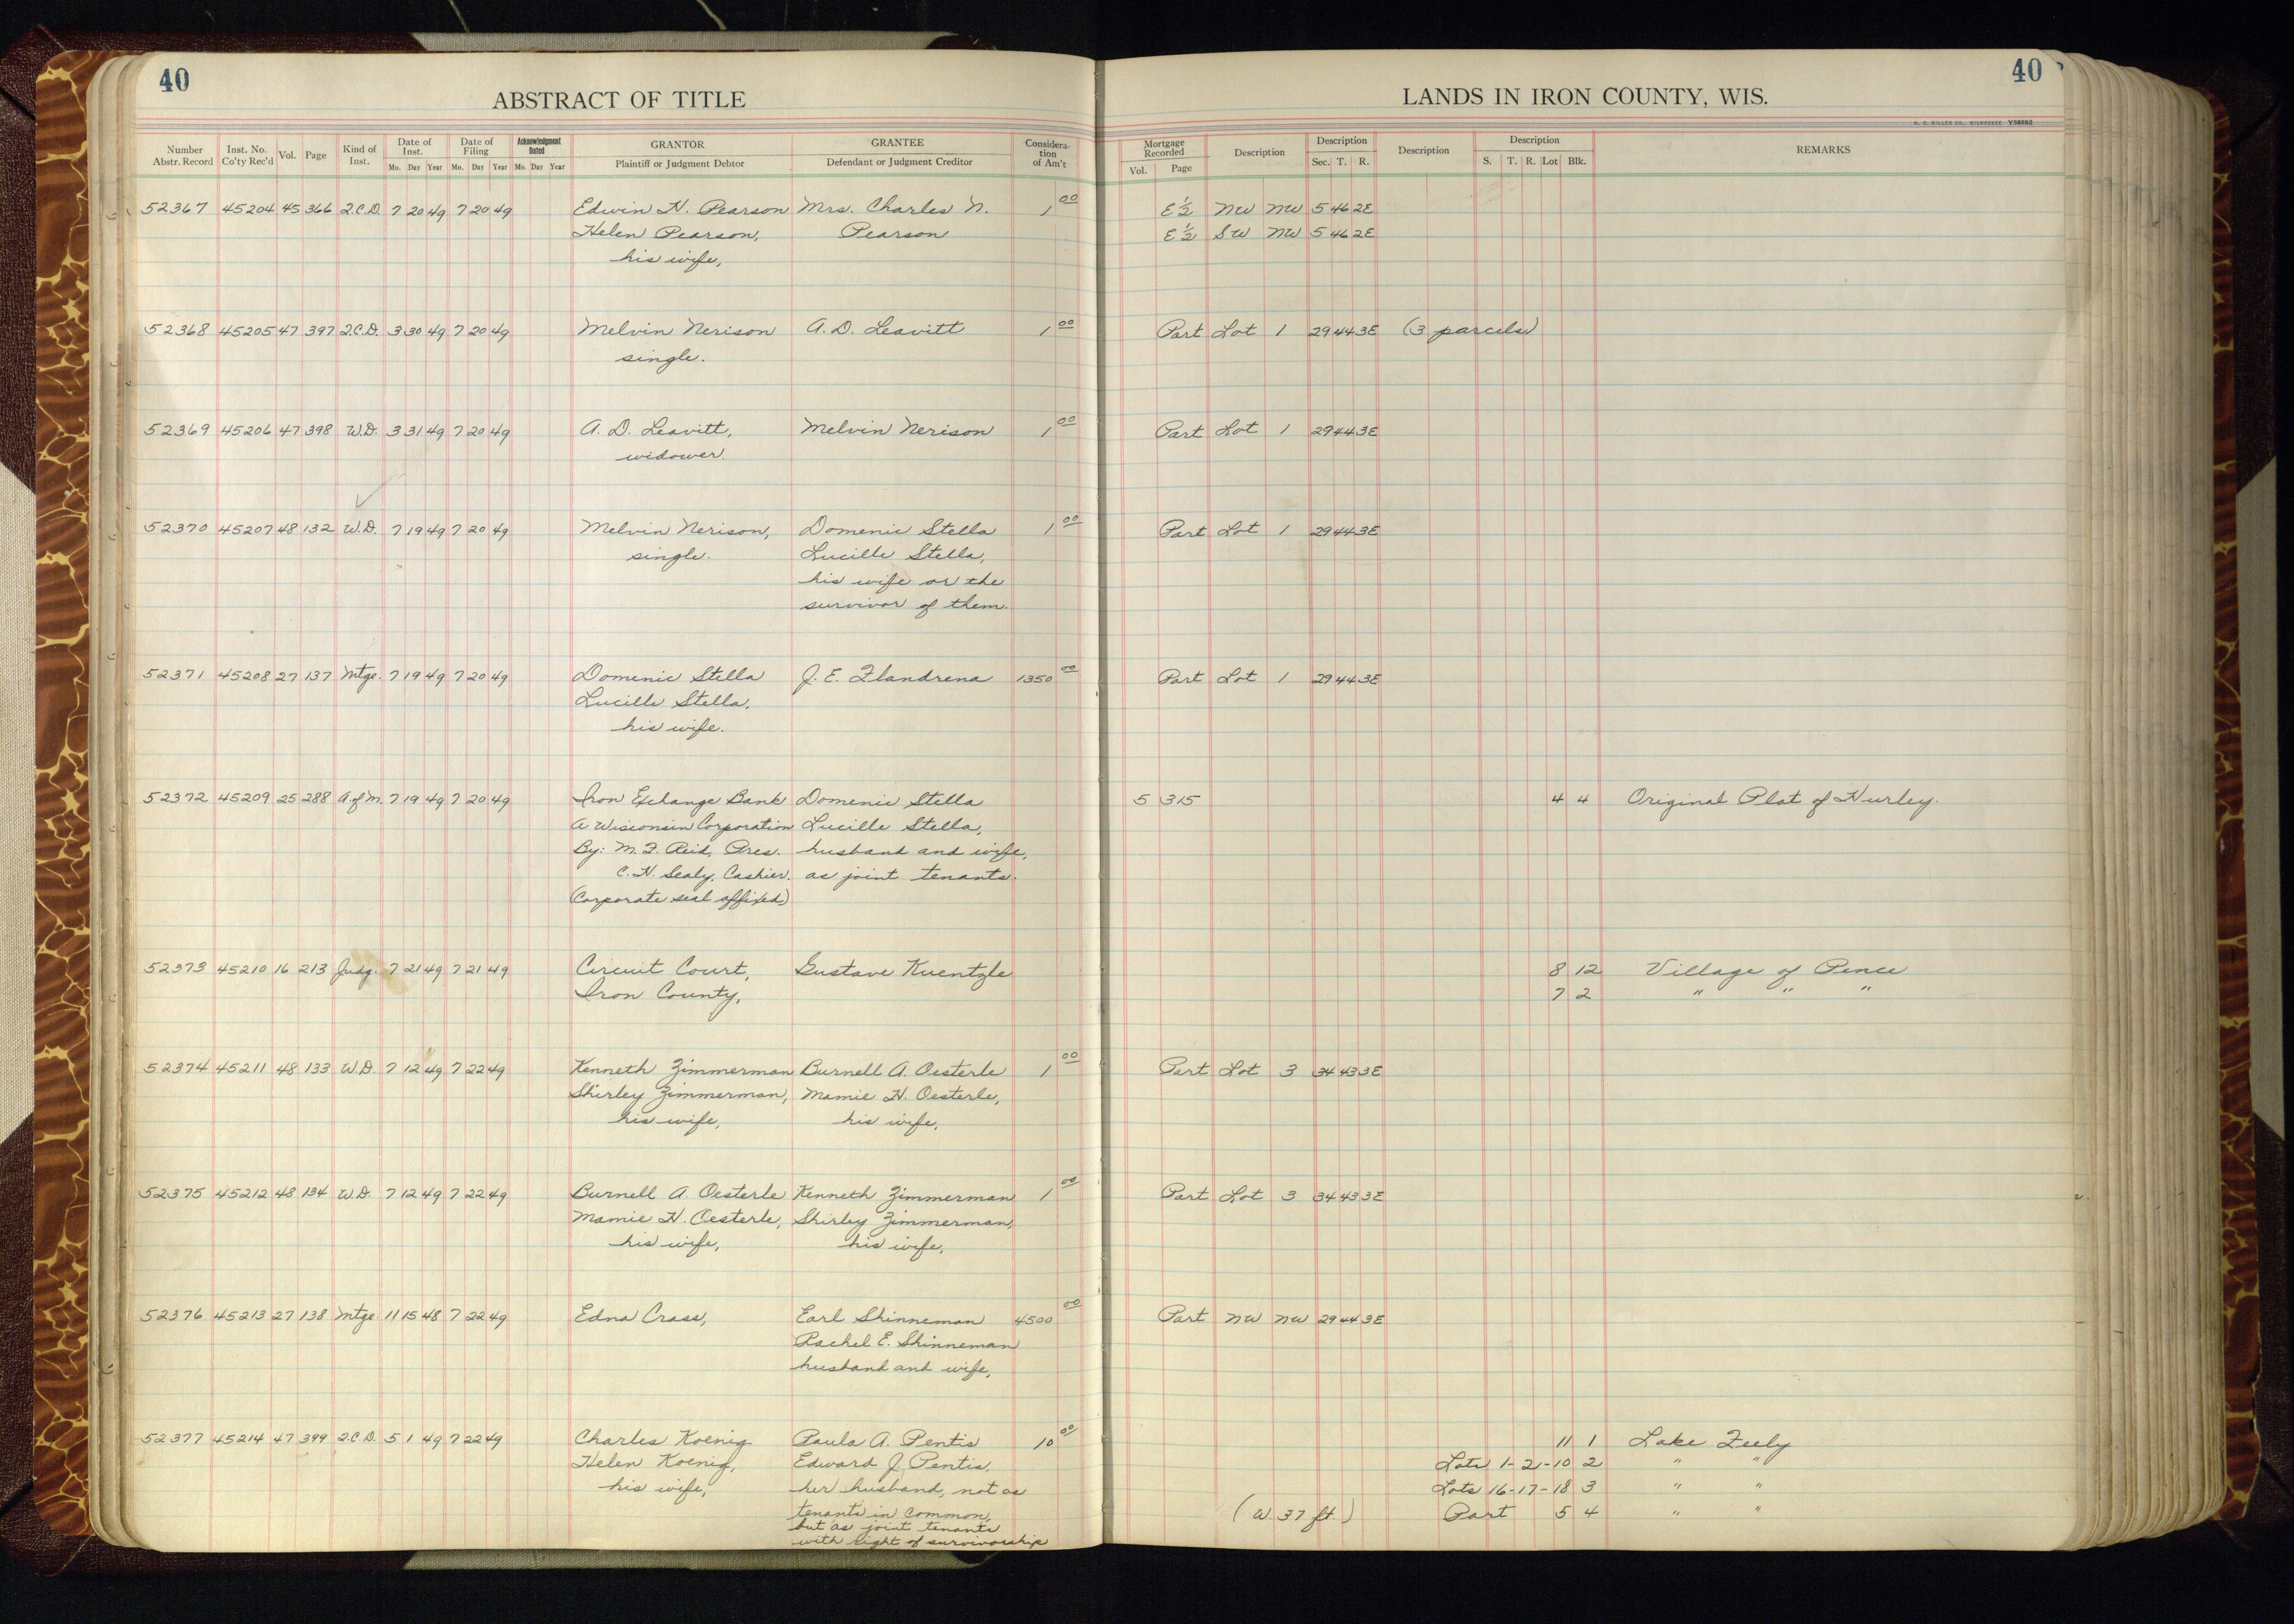 40
ABSTRACT OF TITLE
Number Abstr. Record
Inst. No. Co'ty Rec'd
Vol.
Page
Kind of Inst.
Date of Inst.
Mo. Day Year
Date of Filing
Mo. Day Year
Acknowledgment Dated
Mo. Day Year
GRANTOR
Plaintiff or Judgment Debtor
GRANTEE
Defendant or Judgment Creditor
Considera-
tion
of Am't
40
LANDS IN IRON COUNTY, WIS.
H. C. MILLER CO., MILWAUKEE
Mortgage Recorded
Vol. Page
Description
Description
Sec. T. R.
Description
Description
S. T. R. Lot Blk.
REMARKS
52367 45204 45 366 Q.C.D. 7 20 49 7 20 49 Edwin H. Pearson Mrs. Charles N. 1 00 E½ NW NW 5 46 2E
Helen Pearson, Pearson E½ SW NW 5 46 2E
his wife,
52368 45205 47 397 Q.C.D. 3 30 49 7 20 49 Melvin Nerison A. D. Leavitt 1 00 Part Lot 1 29 44 3E (3 parcels)
single.
52369 45206 47 398 W.D. 3 31 49 7 20 49 A. D. Leavitt, Melvin Nerison 1 00 Part Lot 1 29 44 3E
widower.
52370 45207 48 132 W.D. 7 19 49 7 20 49 Melvin Nerison, Domenic Stella 1 00 Part Lot 1 29 44 3E
single. Lucille Stella,
his wife or the
survivor of them.
52371 45208 27 137 Mtge. 7 19 49 7 20 49 Domenic Stella J. E. Flandrena 1350 00 Part Lot 1 29 44 3E
Lucille Stella,
his wife.
52372 45209 25 288 A. of M. 7 19 49 7 20 49 Iron Exchange Bank Domenic Stella 5 315 4 4 Original Plat of Hurley.
A Wisconsin Corporation Lucille Stella,
By: M. F. Reid, Pres. husband and wife,
C. H. Sealy, Cashier. as joint tenants.
(Corporate seal affixed)
52373 45210 16 213 Judg. 7 21 49 7 21 49 Circuit Court, Gustave Kuentzle 8 12 Village of Pence
Iron County, 7 2 " " "
52374 45211 48 133 W.D. 7 12 49 7 22 49 Kenneth Zimmerman Burnell A. Oesterle 1 00 Part Lot 3 34 43 3E
Shirley Zimmerman, Mamie H. Oesterle,
his wife, his wife,
52375 45212 48 134 W.D. 7 12 49 7 22 49 Burnell A. Oesterle Kenneth Zimmerman 1 00 Part Lot 3 34 43 3E
Mamie H. Oesterle, Shirley Zimmerman,
his wife, his wife,
52376 45213 27 138 Mtge. 11 15 48 7 22 49 Edna Crass, Earl Shinneman 4500 00 Part NW NW 29 44 3E
Rachel E. Shinneman
husband and wife,
52377 45214 47 399 Q.C.D. 5 1 49 7 22 49 Charles Koenig Paula A. Pentis 10 00 11 1 Lake Feely
Helen Koenig, Edward J. Pentis, Lots 1-2-10 2 " "
his wife, her husband, not as Lots 16-17-18 3 " "
tenants in common, (W. 37 ft.) Part 5 4 " "
but as joint tenants
with right of survivorship